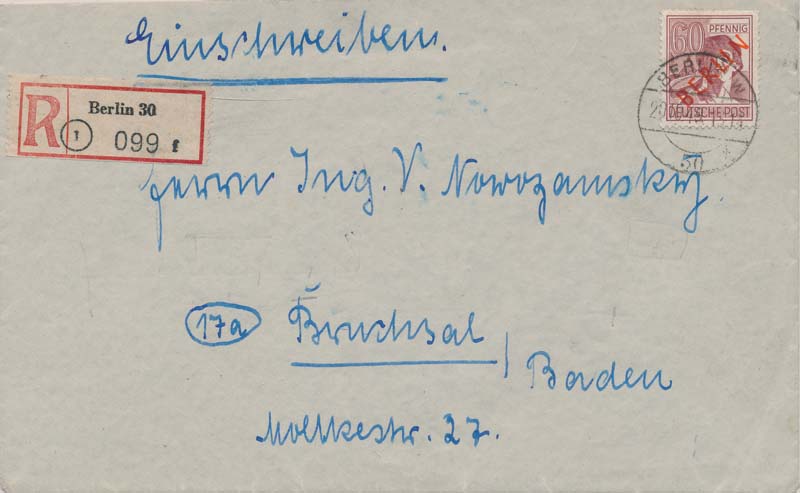 Einschreiben.
60 PFENNIG
BERLIN
DEUTSCHE POST
BERLIN W
30
R Berlin 30
1 099 f
Herrn Ing. V. Nowozamsky.
17a Bruchsal /
Baden
Moltkestr. 27.